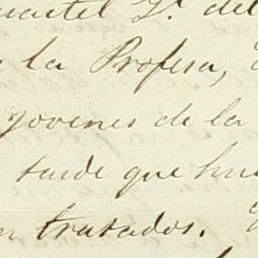 cuartel Gr. del
la Profesa,
jovenes de la
tarde que
tratados.